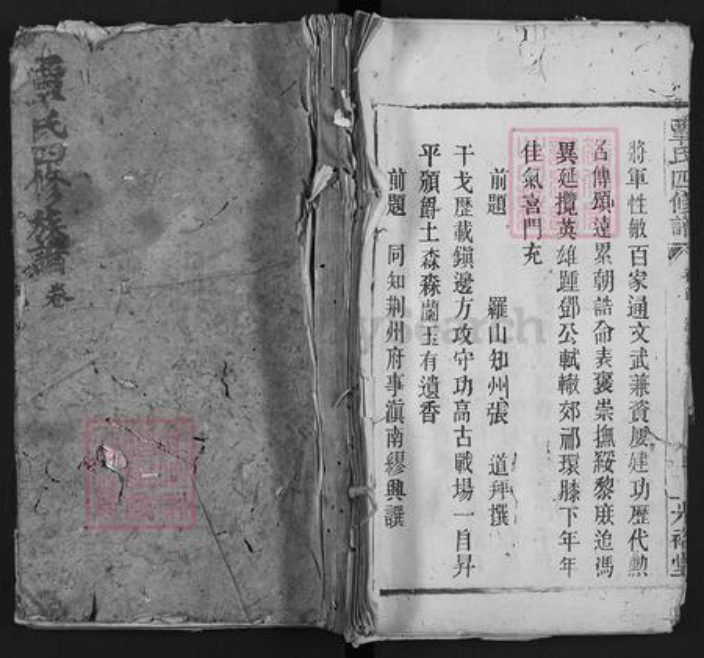 覃氏四修族譜 卷
覃氏四修譜
大裕堂
將軍性敏百家通文武兼資屢建功歷代勲
名傳頌遠累朝誥命表褒崇撫綏黎庶追馮
異延攬英雄踵鄧公軾轍郊祁環膝下年年
佳氣喜門充
前題 羅山知州張 道拜撰
干戈歷載鎮邊方攻守功高古戰場一自昇
平頒爵土森森蘭玉有遺香
前題 同知荆州府事滇南繆興譔